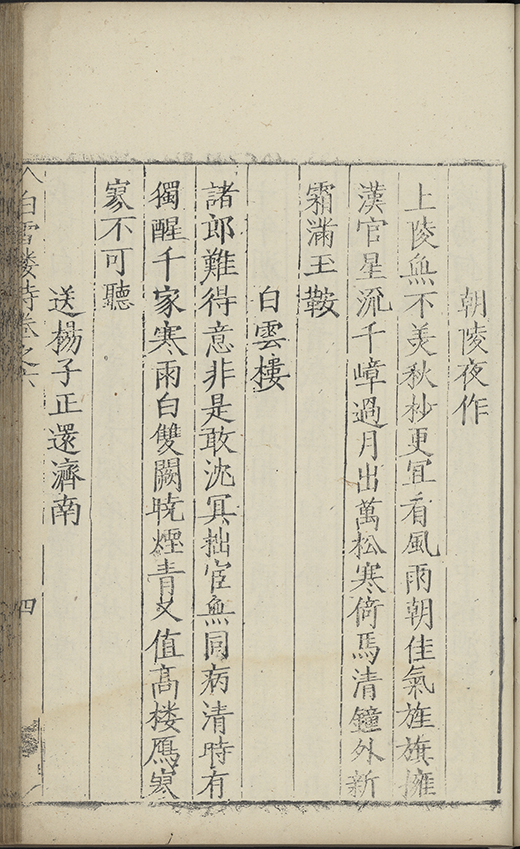 朝陵夜作
上陵無不美秋杪更宜看風雨朝佳氣旌旗擁
漢官星流千嶂過月出萬松寒倚馬清鐘外新
霜滿玉鞍
白雲樓
諸郎難得意非是敢沈冥拙宦無同病清時有
獨醒千家寒雨白雙闕曉煙青又值高樓鴈寥
寥不可聽
送楊子正還濟南
白雪楼詩卷之六
四